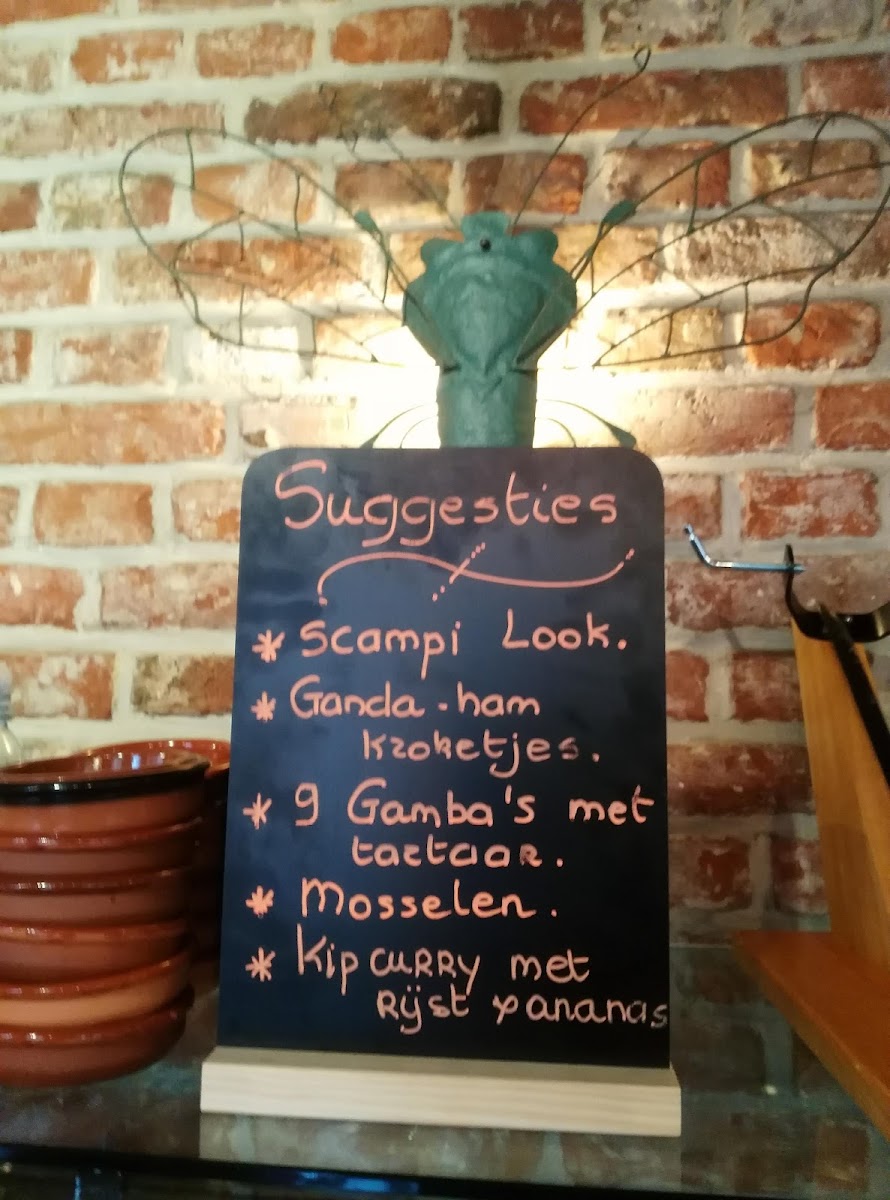 Suggesties
* Scampi Look.
* Ganda-ham
kroketjes.
* 9 Gamba's met
tartaar.
* Mosselen.
* Kip CURRY met
Rijst & ananas